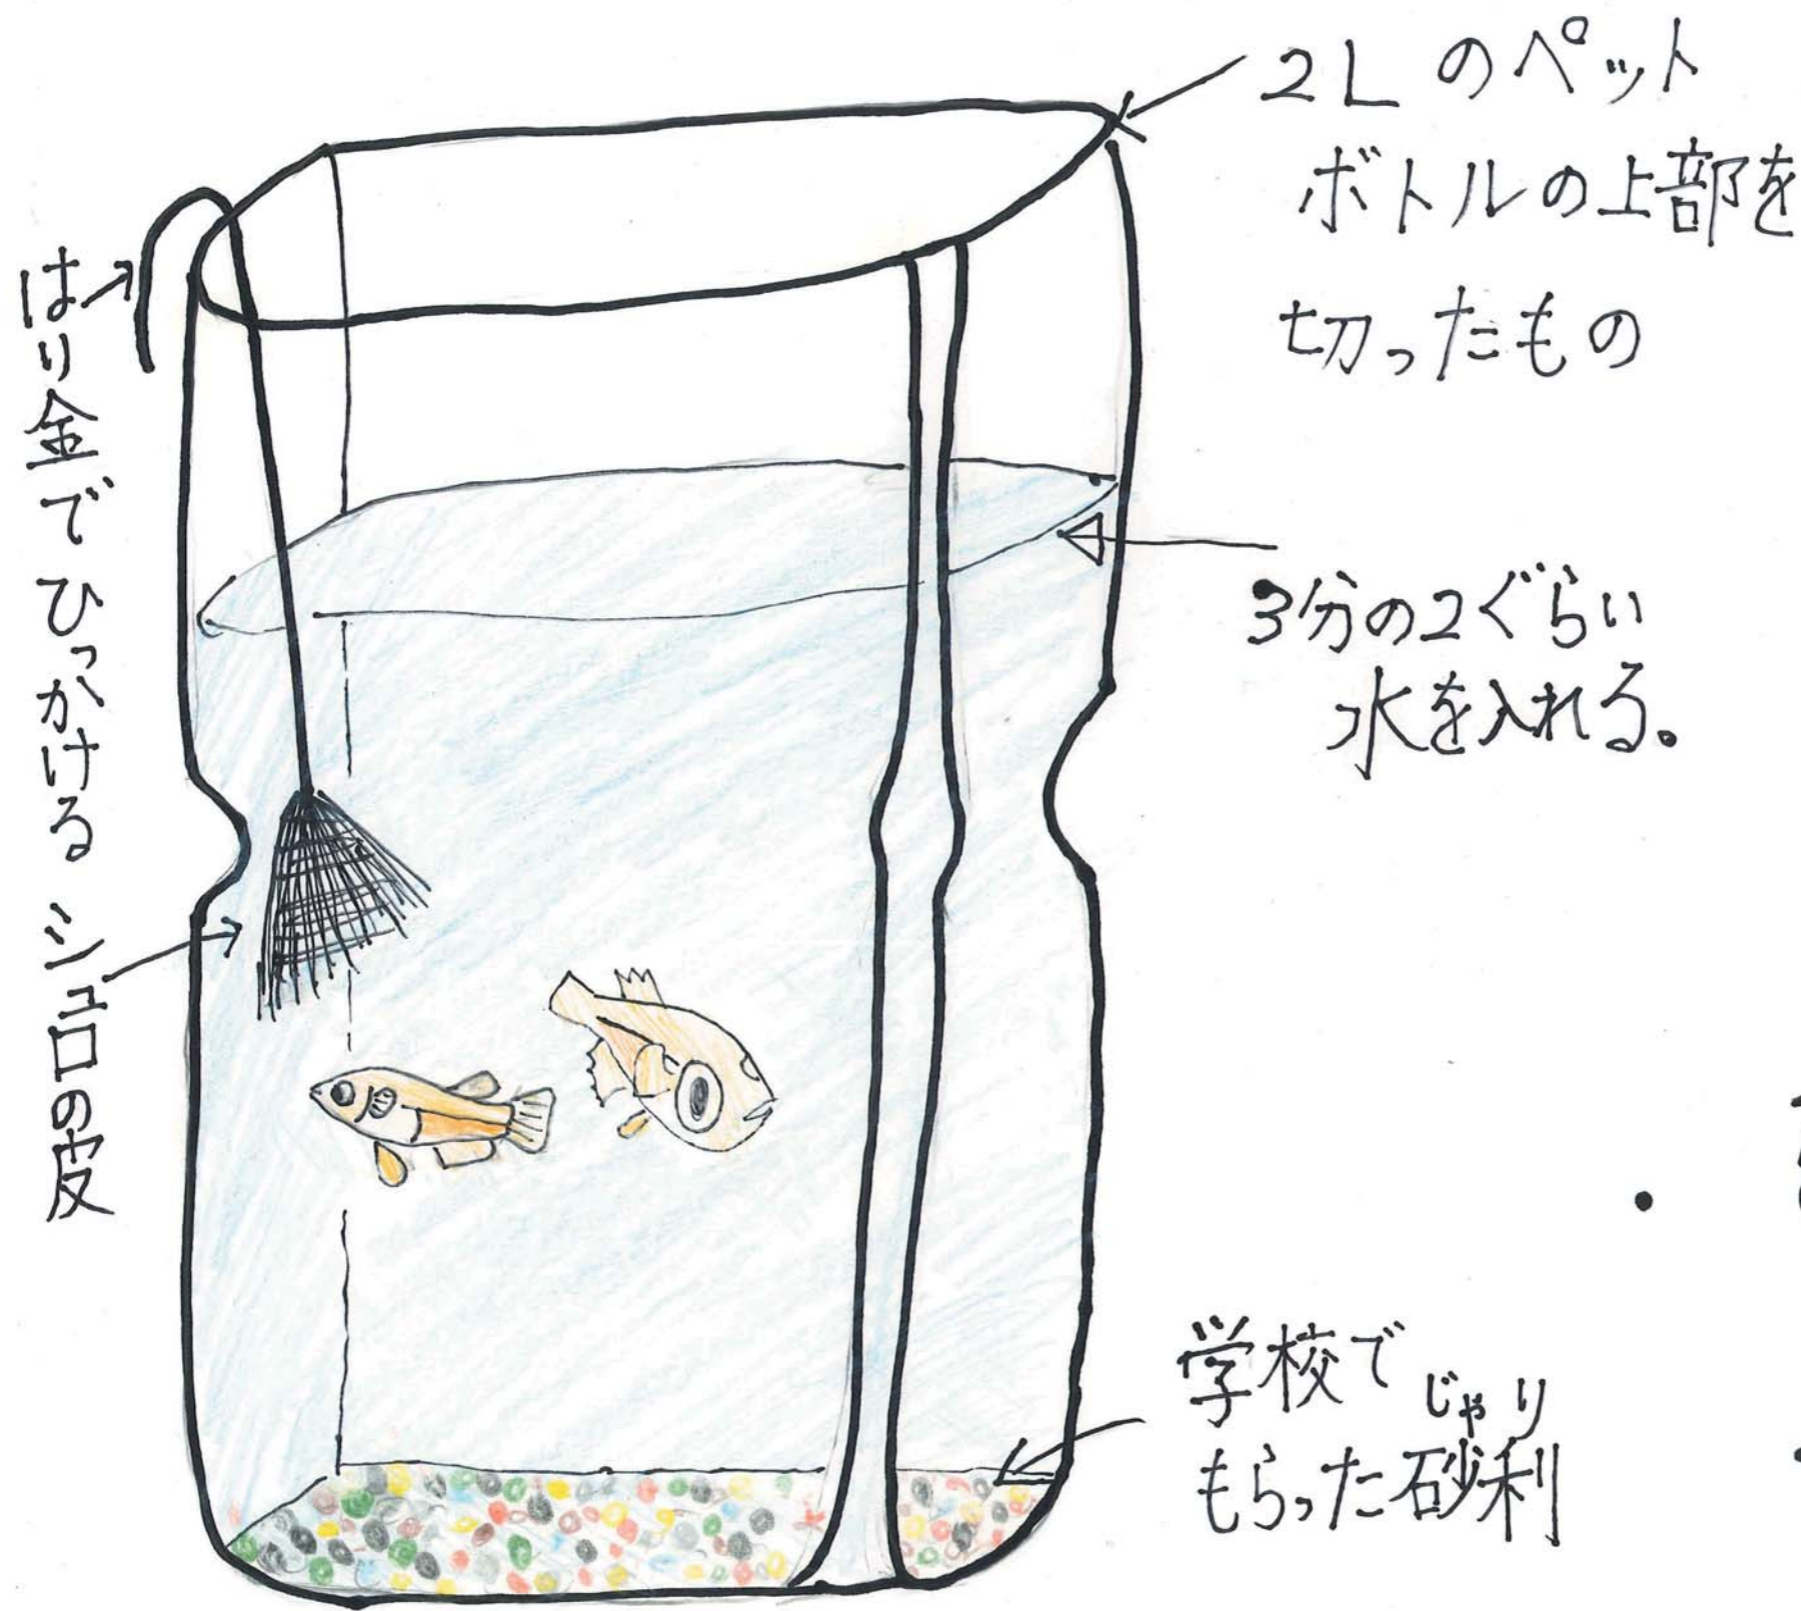 2Lのペット
ボトルの上部を
切ったもの
はり金でひっかける
シュロの皮
3分の2ぐらい
水を入れる。
学校で
もらった砂利
じゃり